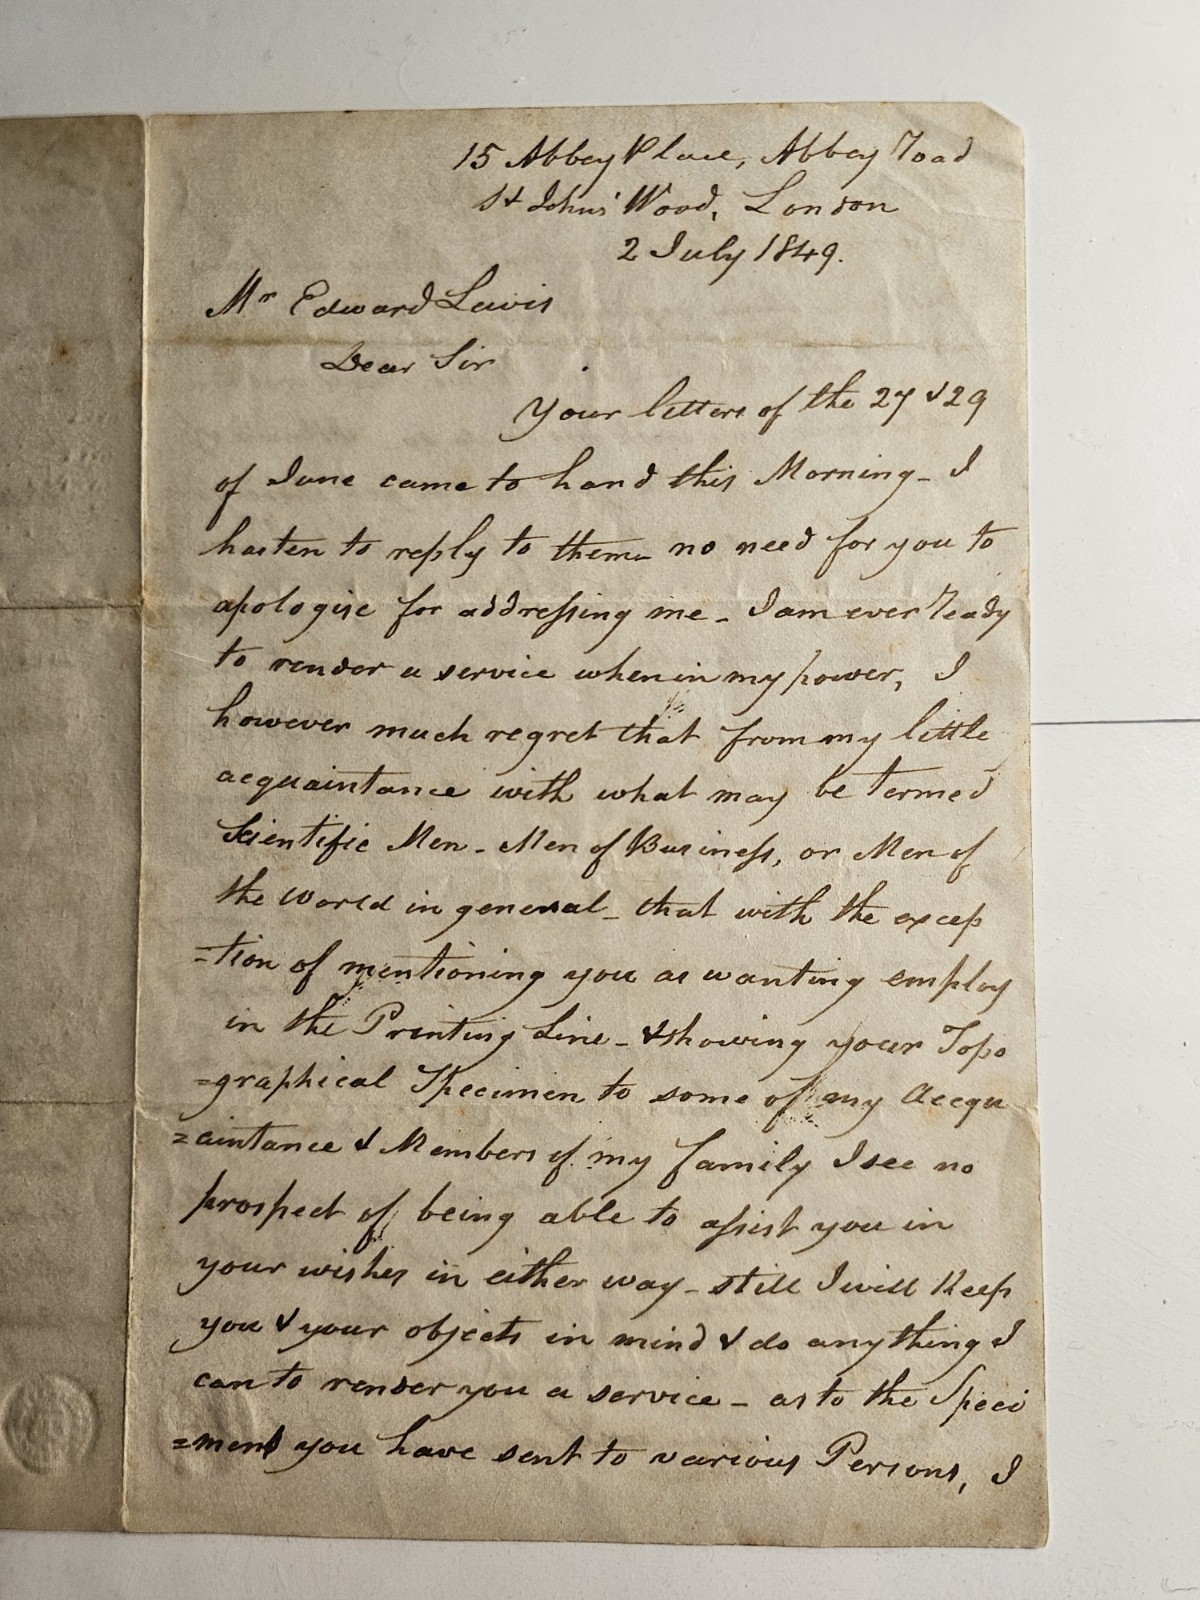 15 Abbey Place, Abbey Road
St Johns' Wood, London
2 July 1849.
Mr Edward Lewis
Dear Sir
Your letters of the 27 & 29
of June came to hand this Morning - I
hasten to reply to them - no need for you to
apologise for addressing me - I am ever ready
to render a service when in my power, I
however much regret that from my little
acquaintance with what may be termed
Scientific Men - Men of Business, or Men of
the World in general - that with the excep
=tion of mentioning you as wanting employ
in the Printing Line - & showing your Topo
=graphical Specimen to some of my Acequ
=aintance & Members of my family I see no
prospect of being able to assist you in
your wishes in either way - still I will keep
you & your objects in mind & do anything I
can to render you a service - as to the Speci
=mens you have sent to various Persons, I